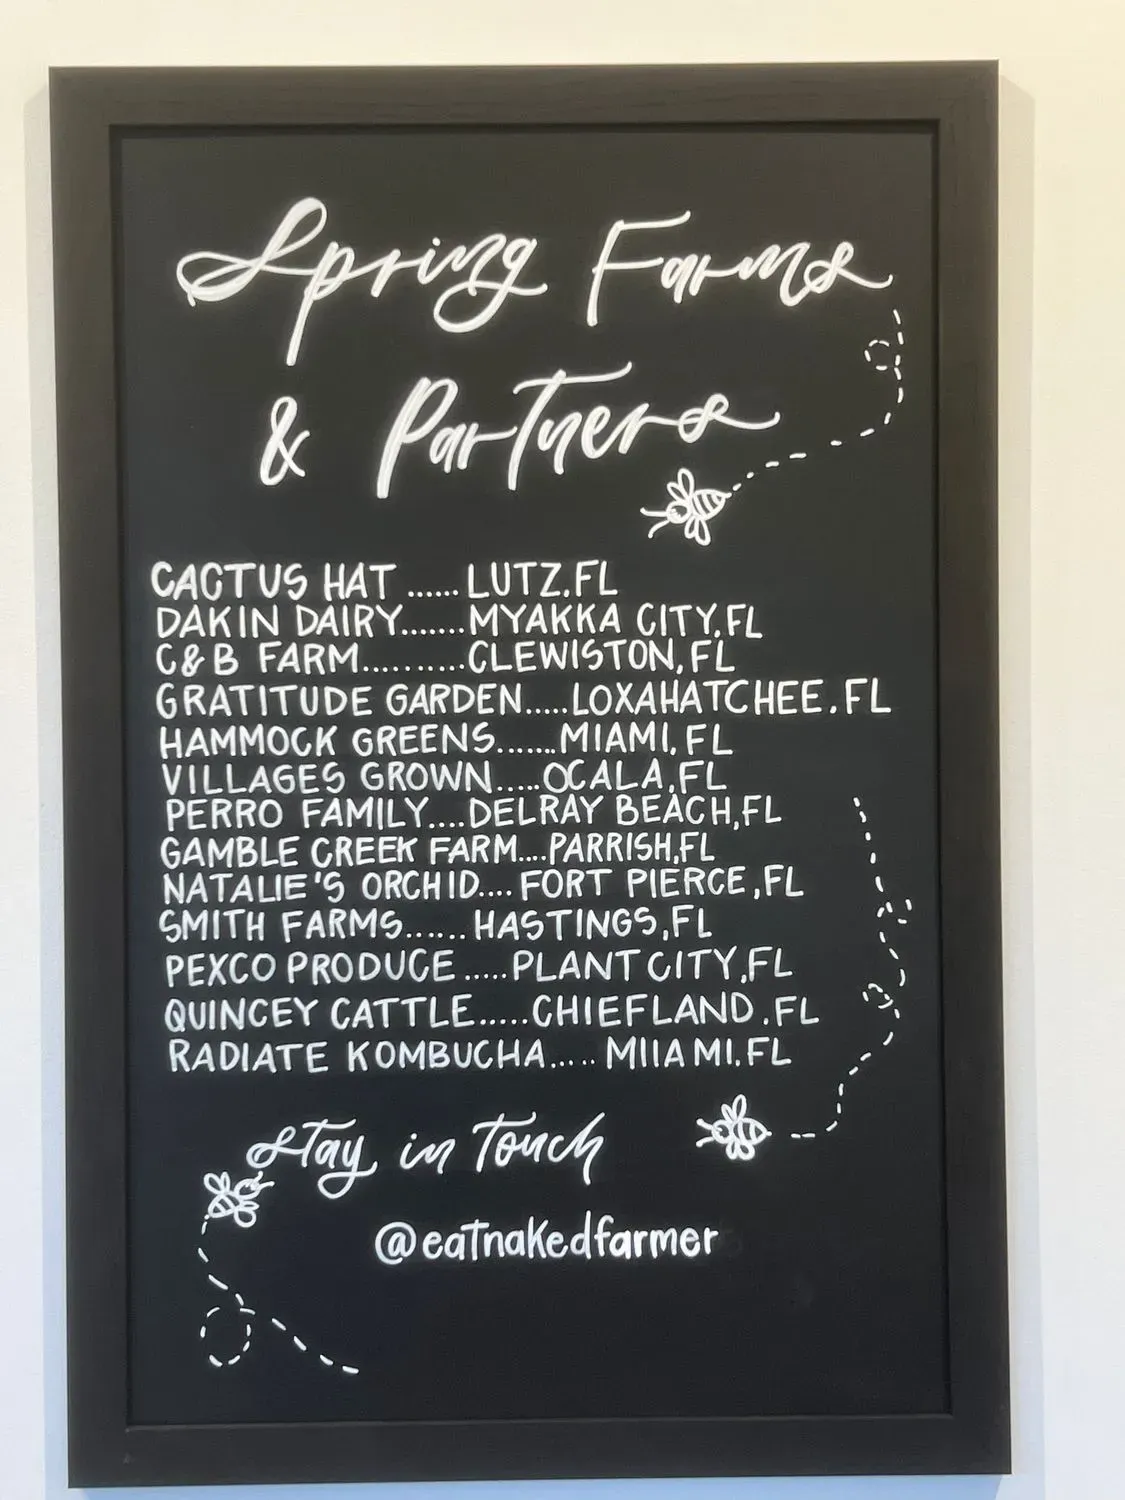 Spring Farms
& Partners
CACTUS HAT ...... LUTZ,FL
DAKIN DAIRY.......MYAKKA CITY,FL
C&B FARM..........CLEWISTON,FL
GRATITUDE GARDEN.....LOXAHATCHEE,FL
HAMMOCK GREENS.......MIAMI,FL
VILLAGES GROWN.....OCALA,FL
PERRO FAMILY....DELRAY BEACH,FL
GAMBLE CREEK FARM....PARRISH,FL
NATALIE'S ORCHID.... FORT PIERCE,FL
SMITH FARMS...... HASTINGS,FL
PEXCO PRODUCE .....PLANT CITY,FL
QUINCEY CATTLE.....CHIEFLAND,FL
RADIATE KOMBUCHA..... MIIAMI,FL
stay in touch
@eatnakedfarmer